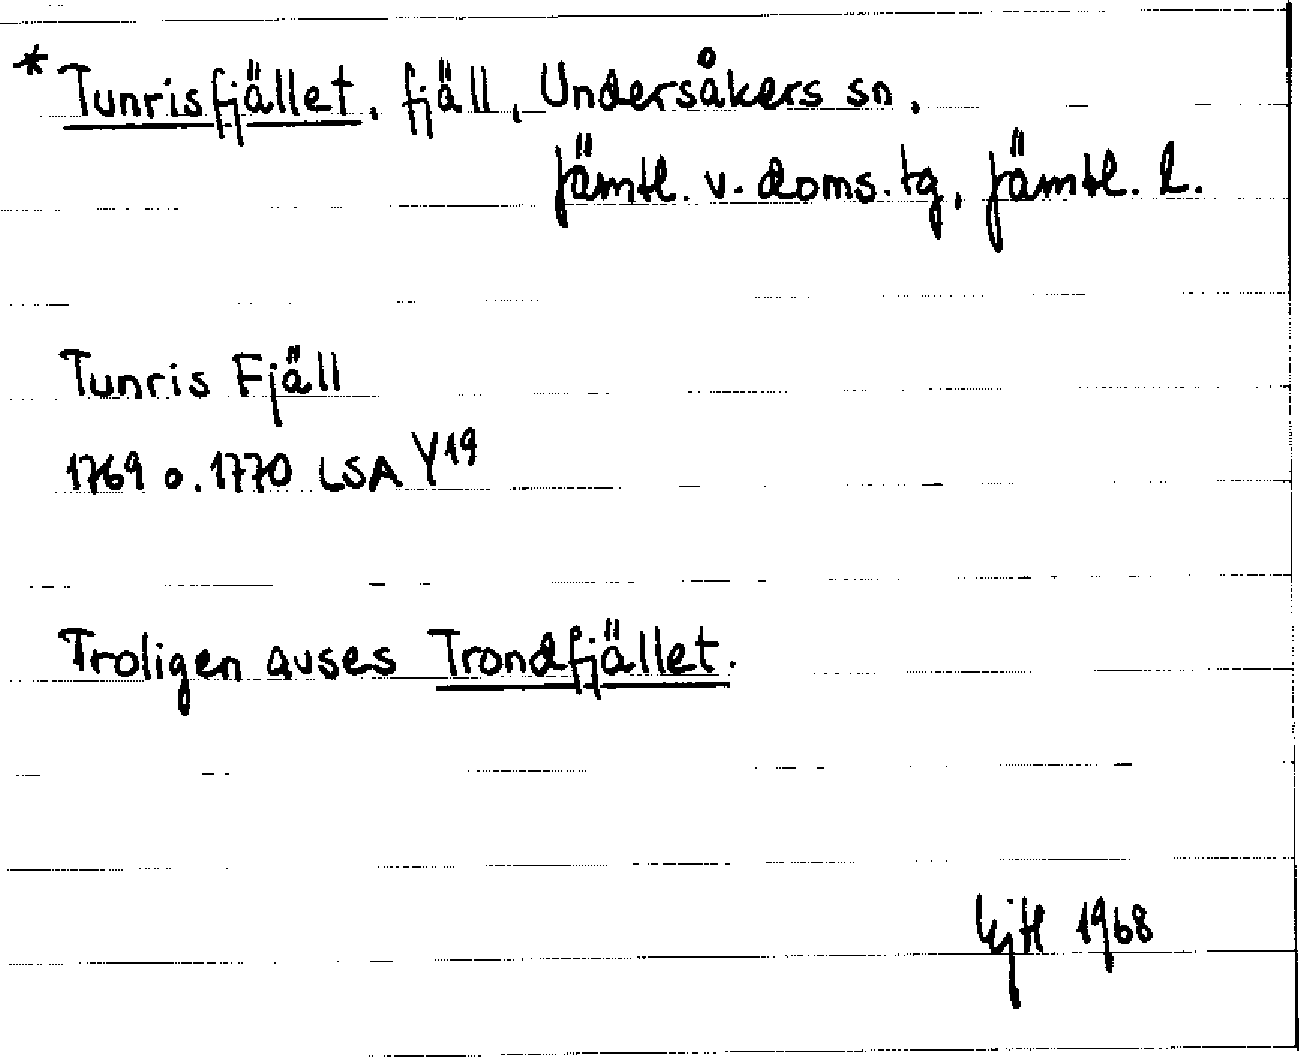 * Tunrisfjället, fjäll, Undersåkers sn,
Jämtl. v. doms. tg, Jämtl. l.
Tunris Fjäll
1769 o. 1770 LSA Y19
Troligen avses Trondfjället.
1968